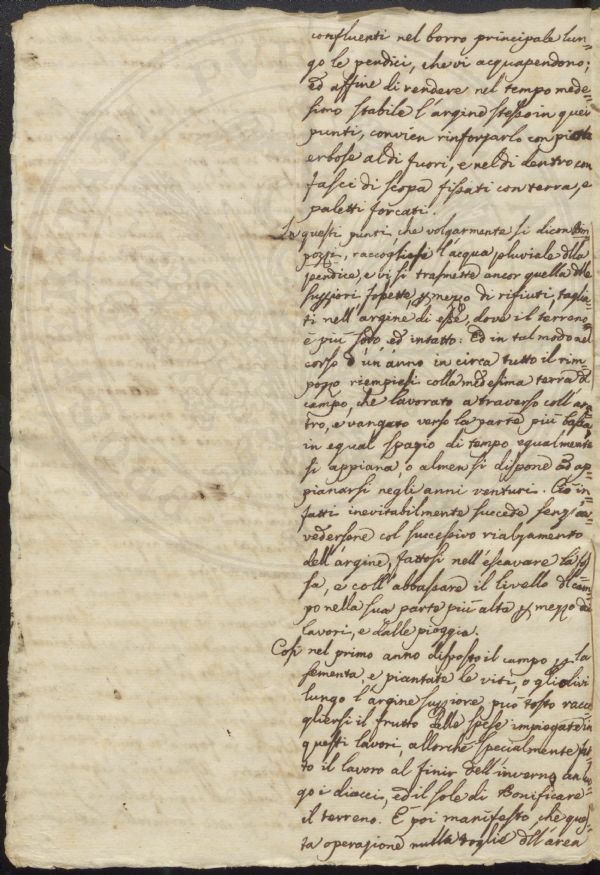 confluenti nel borro principale lun=
go le pendici, che vi acquapendono;
ed affine di rendere nel tempo mede=
simo stabile l'argine stesso in quei
punti, convien rinforzarlo con piote
erbose al di fuori, e nel di dentro con
fasci di scopa fissati con terra, e
paletti forcati.
In questi punti che volgarmente si dicon Rim=
pozzi, raccogliesi l'acqua pluviale della
pendice, e vi si trasmette ancor quella delle
supiori fossette, p mezzo di rifiuti, taglia=
ti nell'argine di esse, dove il terreno
è più sodo, ed intatto: Ed in tal modo nel
corso d'un'anno in circa tutto il rim=
pozzo riempiesi colla medesima terra del
campo, che lavorato a traverso coll'ara=
tro, e vangato verso la parte più bassa,
in egual spazio di tempo egualmente
si appiana, o almen si dispone ad ap=
pianarsi negli anni venturi. Ciò in=
fatti inevitabilmente succede senz'av=
vedersene col successivo rialzamento
dell'argine, fattosi nell'escavare la fos=
sa, e coll'abbassare il livello del cam=
po nella sua parte più alta p mezzo dei
lavori, e dalle pioggie.
Così nel primo anno disposto il campo p la
sementa, e piantate le viti, o gli olivi
lungo l'argine supiore, può tosto racco=
gliersi il frutto delle spese impiegate in
questi lavori, allorchè specialmente fat=
to il lavoro al finir dell'inverno, an
go i diacci, ed il sole di Bonificare
il terreno. È poi manifesto, che ques=
ta operazione nulla toglie dell'area